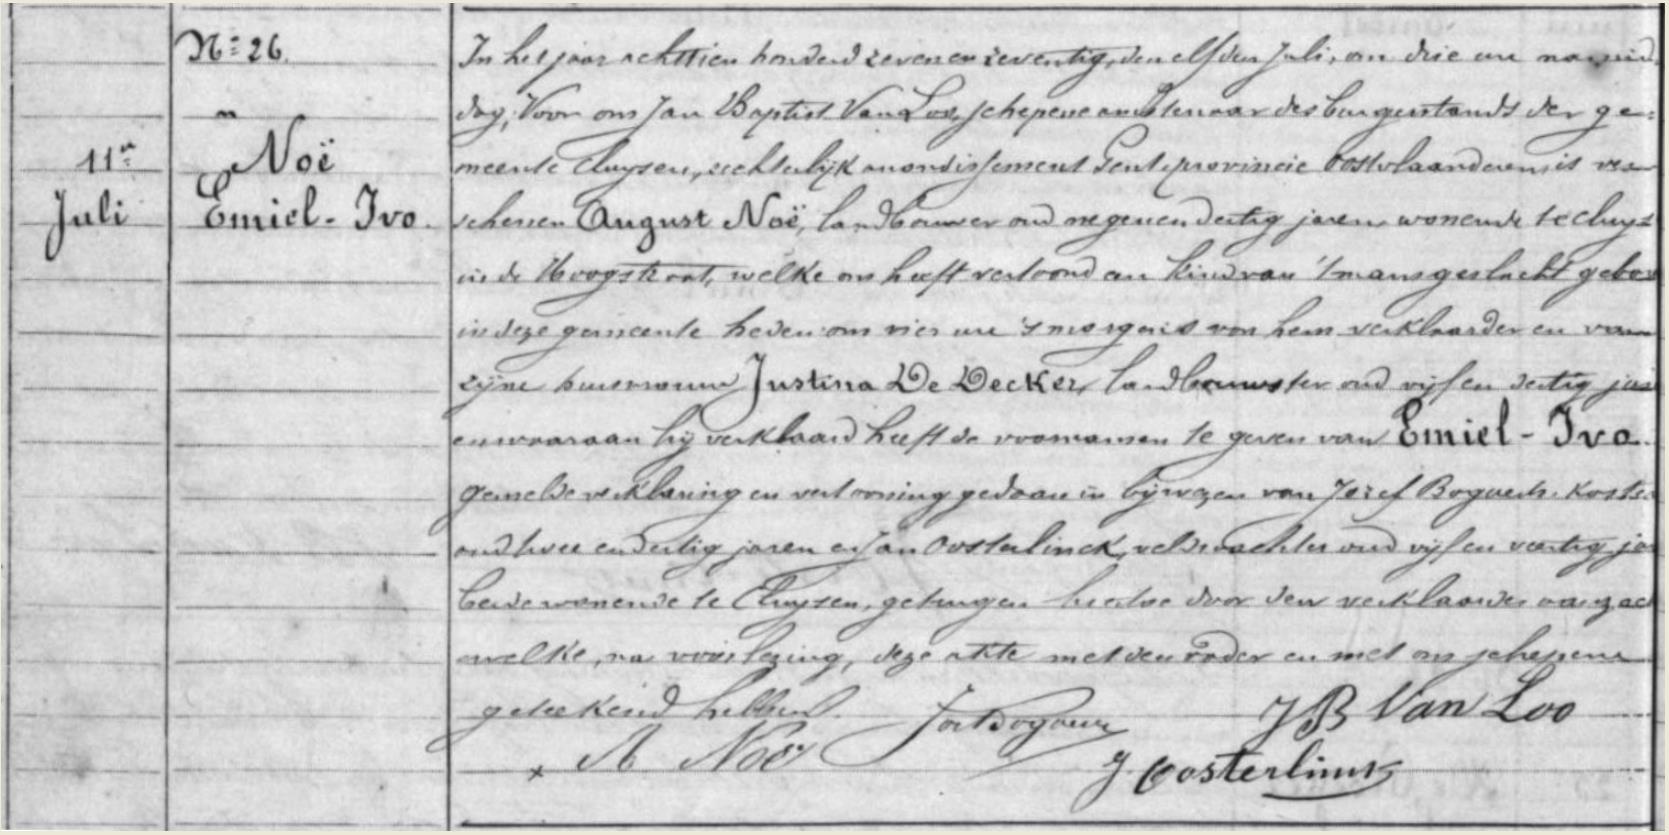 N: 26.
11n
Juli
Noë
Emiel - Ivo.
In het jaar achttien honderd zevenenzeventig, den elfden Juli, om drie ure namid
dag, Voor ons Jan Baptist Van Loo, schepene ambtenaar des burgerstands der ge=
meente Cluysen, rechterlijk arrondissement Gent, provincie Oostvlaanderen, is ver
schenen August Noë, landbouwer oud negenendertig jaren wonende te Cluys=
in de Hoogstraat, welke ons heeft vertoond een kind van 't mansgeslacht gebor
in deze gemeente heden om vier ure 's morgens van hem verklaarder en van
zijne huisvrouw Justina De Decker, landbouwster oud vijf en dertig jar
en waaraan hij verklaard heeft de voornamen te geven van Emiel - Ivo.
Gemelde verklaring en vertooning gedaan in bijwezen van Jozef Bogaert koster
oud twee en dertig jaren en Jan Oosterlinck, veldwachter oud vijf en veertig jar
beide wonende te Cluysen, getuigen hiertoe door den verklaarder aangezoc
welke, na voorlezing, deze akte met den vader en met ons schepene
geteekend hebben.
A Noë
Jos Bogaert
J B Van Loo
J. Oosterlinck